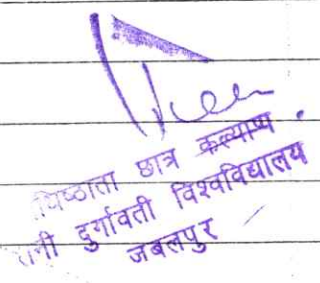 धिष्ठाता छात्र कल्याण
नी दुर्गावती विश्वविद्यालय
जबलपुर